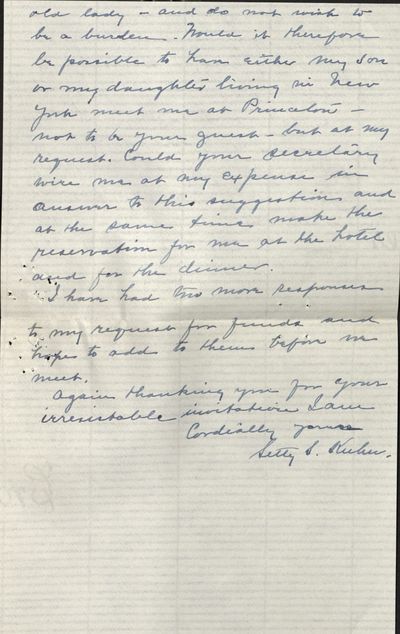 old lady - and do not wish to
be a burden. Would it therefore
be possible to have either my son
or my daughter living in New
York meet me at Princeton -
not to be your guest - but at my
request. Could your secretary
wire me at my expense in
answer to this suggestion and
at the same time make the
reservation for me at the hotel
and for the dinner.
I have had two more responses
to my request for funds and
hope to add to them before we
meet.
Again thanking you for your
irresistable invitation I am
Cordially yours
Setty S. Kuhn.